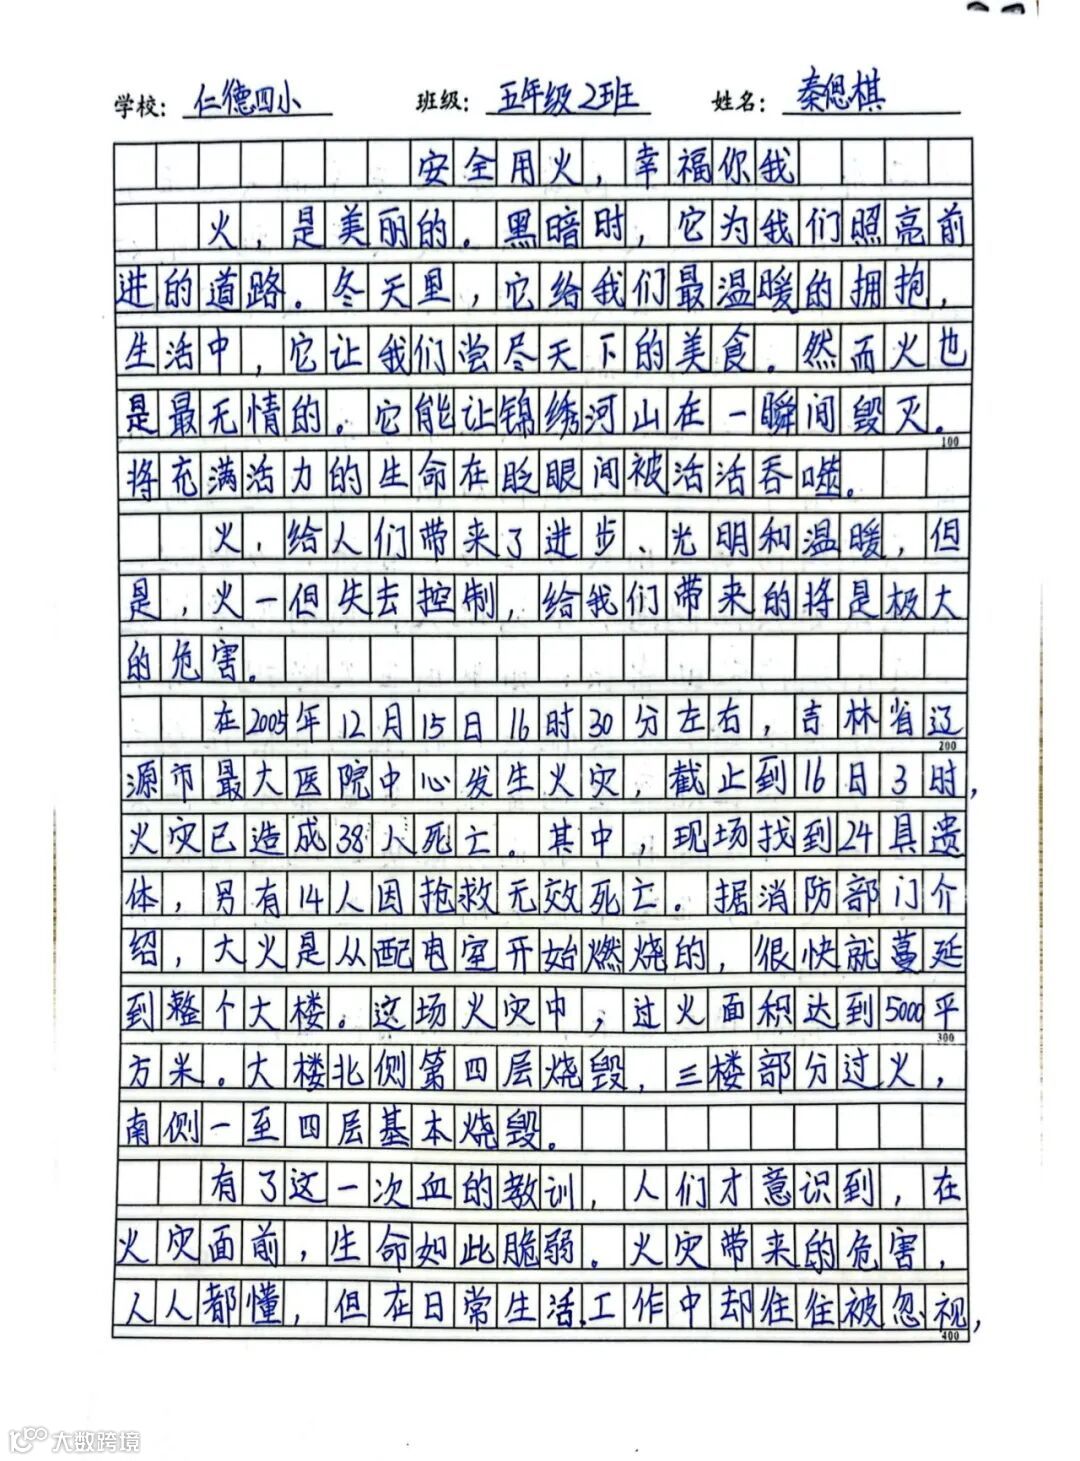 学校：仁德四小 班级：五年级2班 姓名：秦偲棋
安全用火，幸福你我
火，是美丽的。黑暗时，它为我们照亮前
进的道路。冬天里，它给我们最温暖的拥抱，
生活中，它让我们尝尽天下的美食。然而火也
是最无情的。它能让锦绣河山在一瞬间毁灭。
100
将充满活力的生命在眨眼间被活活吞噬。
火，给人们带来了进步、光明和温暖，但
是，火一但失去控制，给我们带来的将是极大
的危害。
在2005年12月15日16时30分左右，吉林省辽
200
源市最大医院中心发生火灾，截止到16日3时，
火灾已造成38人死亡。其中，现场找到24具遗
体，另有14人因抢救无效死亡。据消防部门介
绍，大火是从配电室开始燃烧的，很快就蔓延
到整个大楼。这场火灾中，过火面积达到5000平
300
方米。大楼北侧第四层烧毁，三楼部分过火，
南侧一至四层基本烧毁。
有了这一次血的教训，人们才意识到，在
火灾面前，生命如此脆弱。火灾带来的危害，
人人都懂，但在日常生活.工作中却往往被忽视，
400
大数跨境